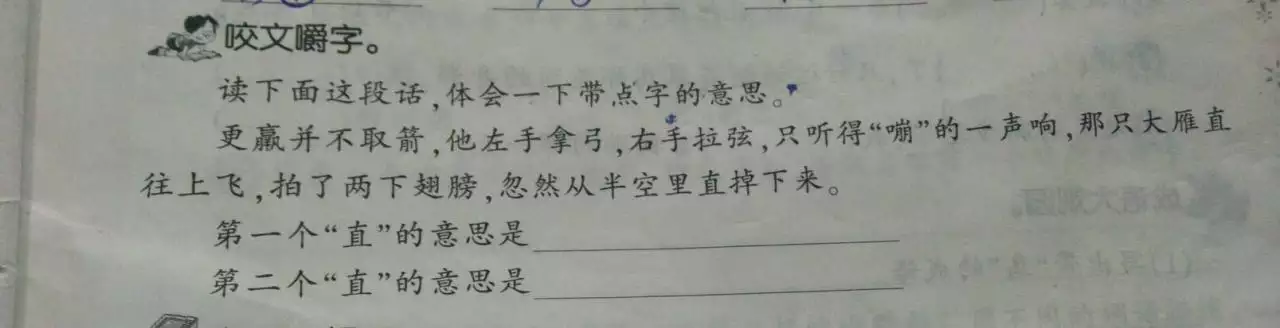 咬文嚼字。
读下面这段话,体会一下带点字的意思。
更羸并不取箭,他左手拿弓,右手拉弦,只听得“嘣”的一声响,那只大雁直
往上飞,拍了两下翅膀,忽然从半空里直掉下来。
第一个“直”的意思是
第二个“直”的意思是